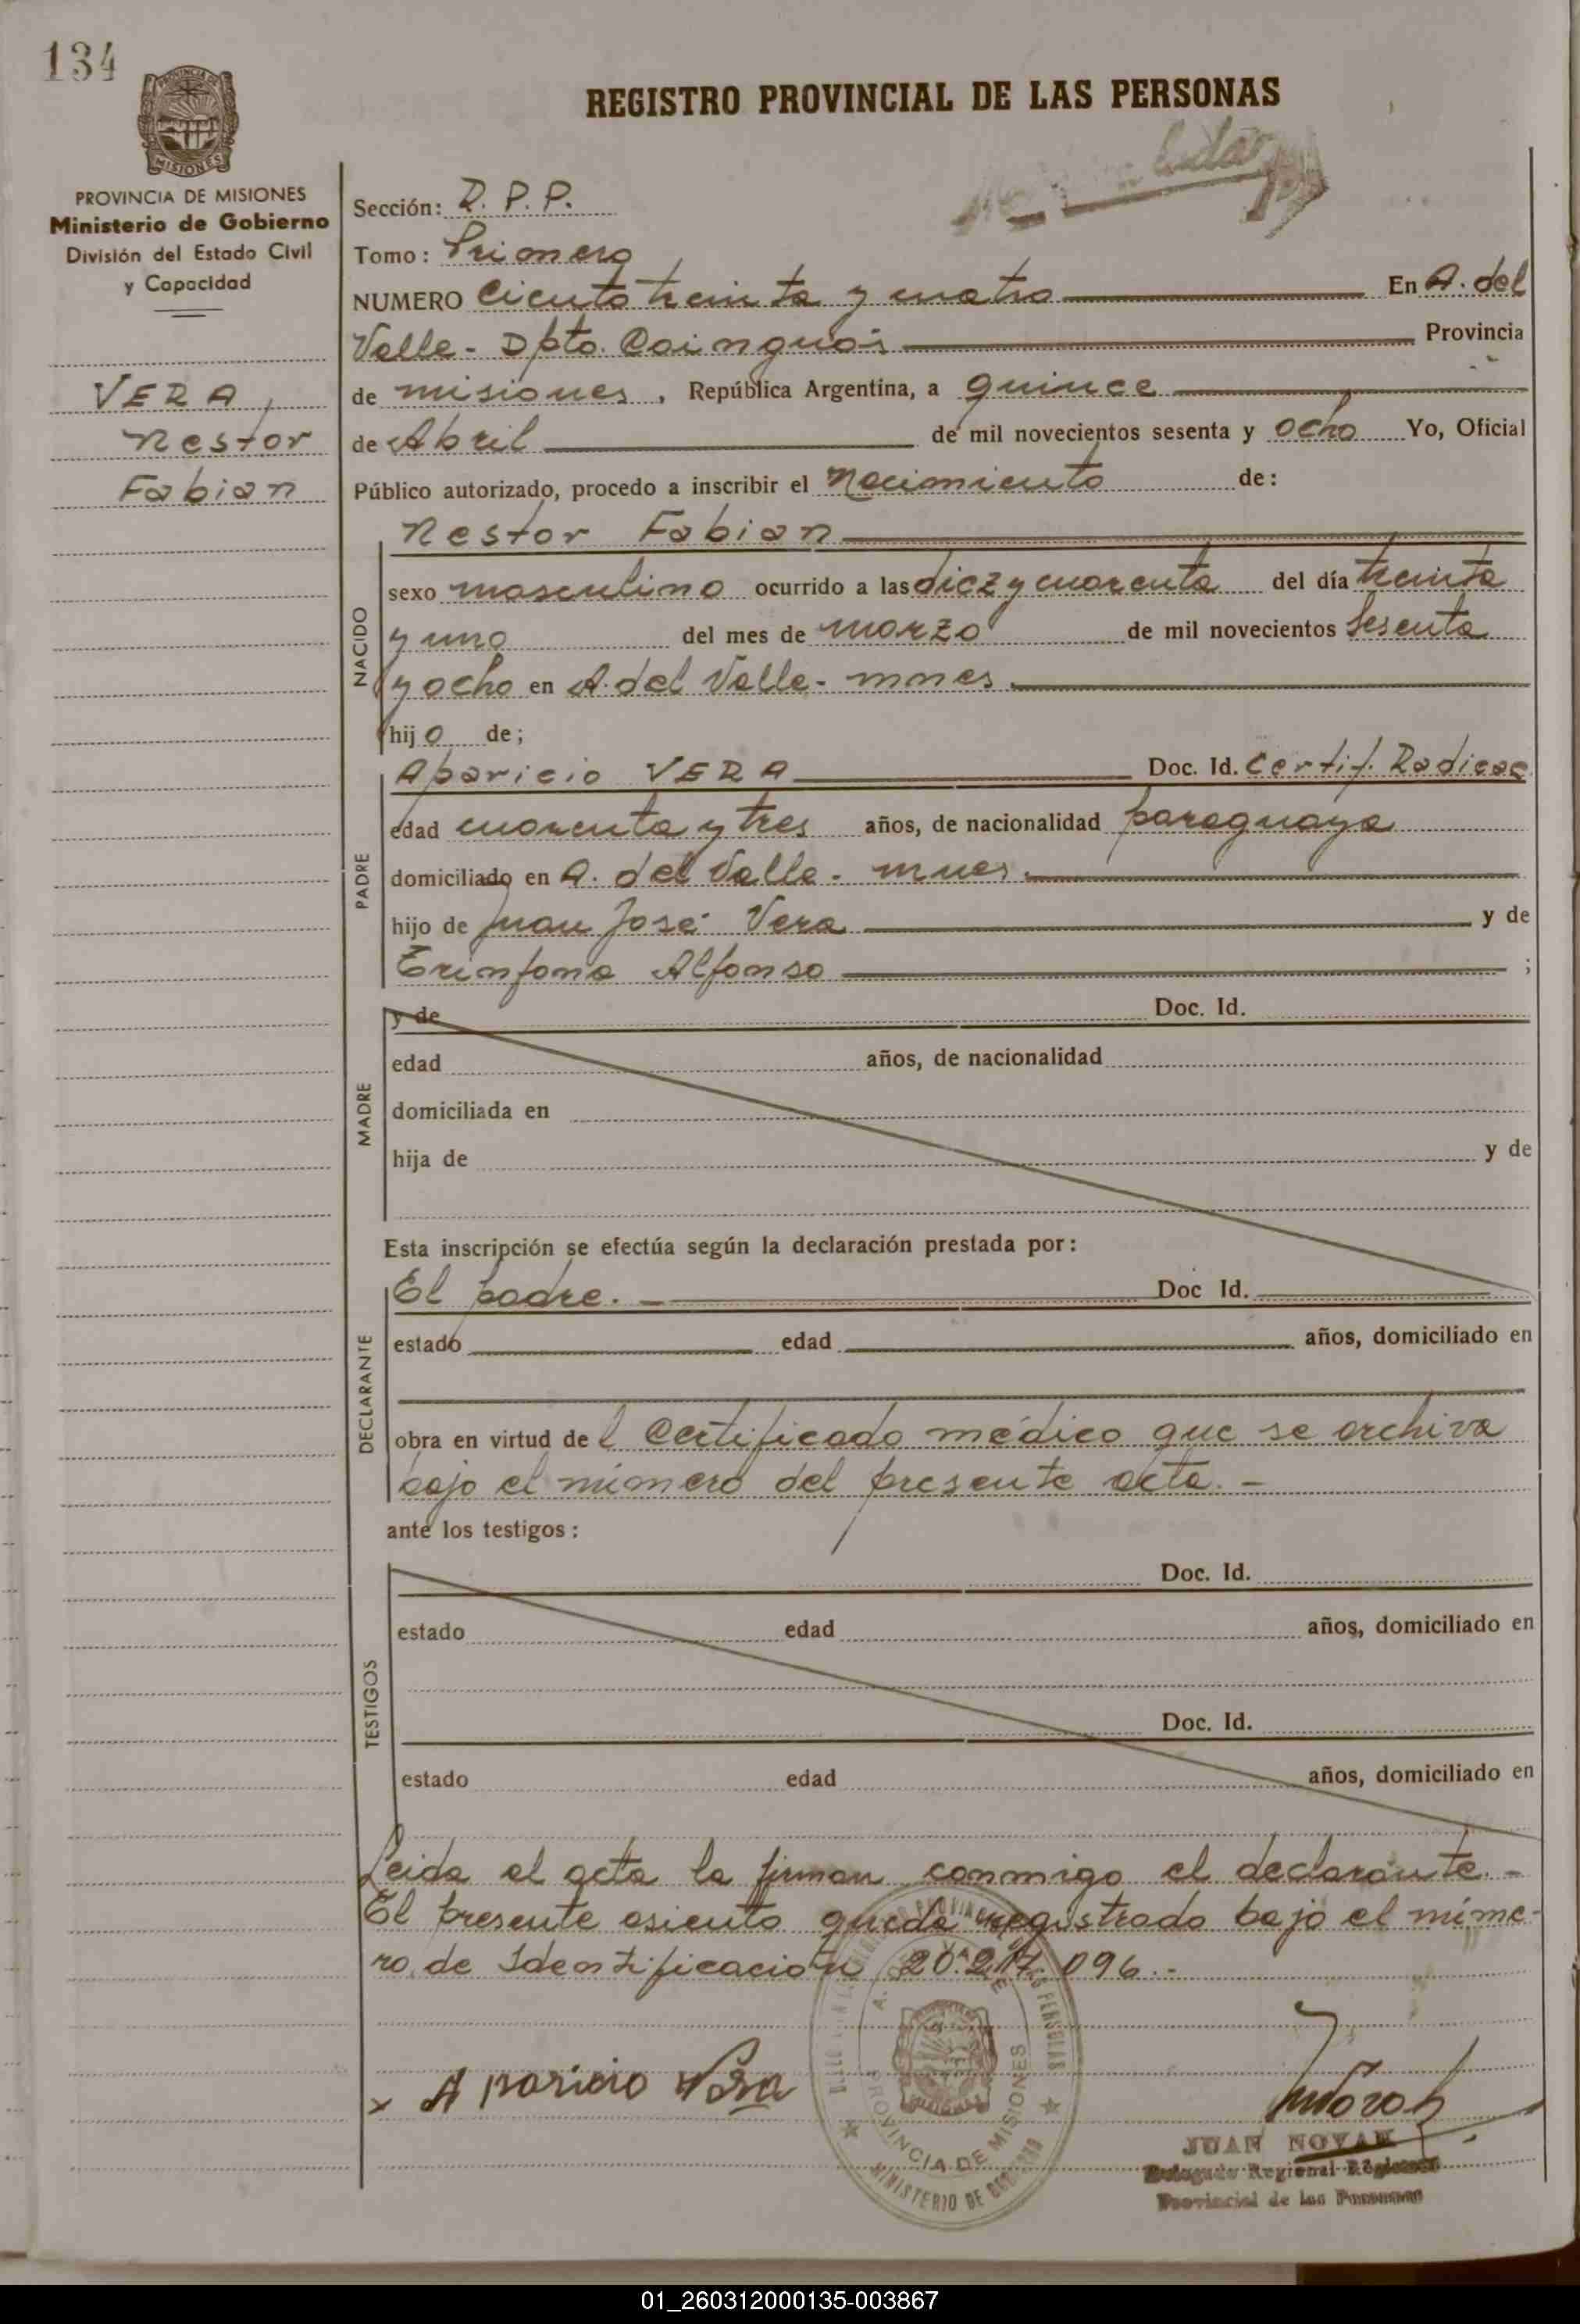 134
PROVINCIA DE MISIONES
Ministerio de Gobierno
División del Estado Civil
y Capacidad
REGISTRO PROVINCIAL DE LAS PERSONAS
VERA,
Nestor
Fabian
Sección: D. P. P.
Tomo: Primero
NUMERO Ciento treinta y cuatro En A. del
Valle - Dpto. Cainguás Provincia
de misiones, República Argentina, a quince
de Abril de mil novecientos sesenta y ocho Yo, Oficial
Público autorizado, procedo a inscribir el Nacimiento de:
NACIDO
Nestor Fabian
sexo masculino ocurrido a las diez y cuarenta del día treinta
y uno del mes de marzo de mil novecientos sesenta
y ocho en A. del Valle - mnes
hijo de;
PADRE
Aparicio VERA Doc. Id. Certif. Radicac
edad cuarenta y tres años, de nacionalidad paraguaya
domiciliado en A. del Valle - mnes.
hijo de Juan José Vera y de
Trinfona Alfonso ;
MADRE
y de Doc. Id.
edad años, de nacionalidad
domiciliada en
hija de y de
Esta inscripción se efectúa según la declaración prestada por:
DECLARANTE
El padre. - Doc Id.
estado edad años, domiciliado en
obra en virtud del Certificado médico que se archiva
bajo el número del presente acta. -
ante los testigos:
TESTIGOS
Doc. Id.
estado edad años, domiciliado en
Doc. Id.
estado edad años, domiciliado en
Leida el acta la firman conmigo el declarante. -
El presente asiento queda registrado bajo el núme-
ro de Identificación 20.217.096. -
x Aparicio Vera
PROVINCIA DE MISIONES
MINISTERIO DE GOBIERNO
JUAN NOVAK
Delegado Regional Registro
Provincial de las Personas
01_260312000135-003867